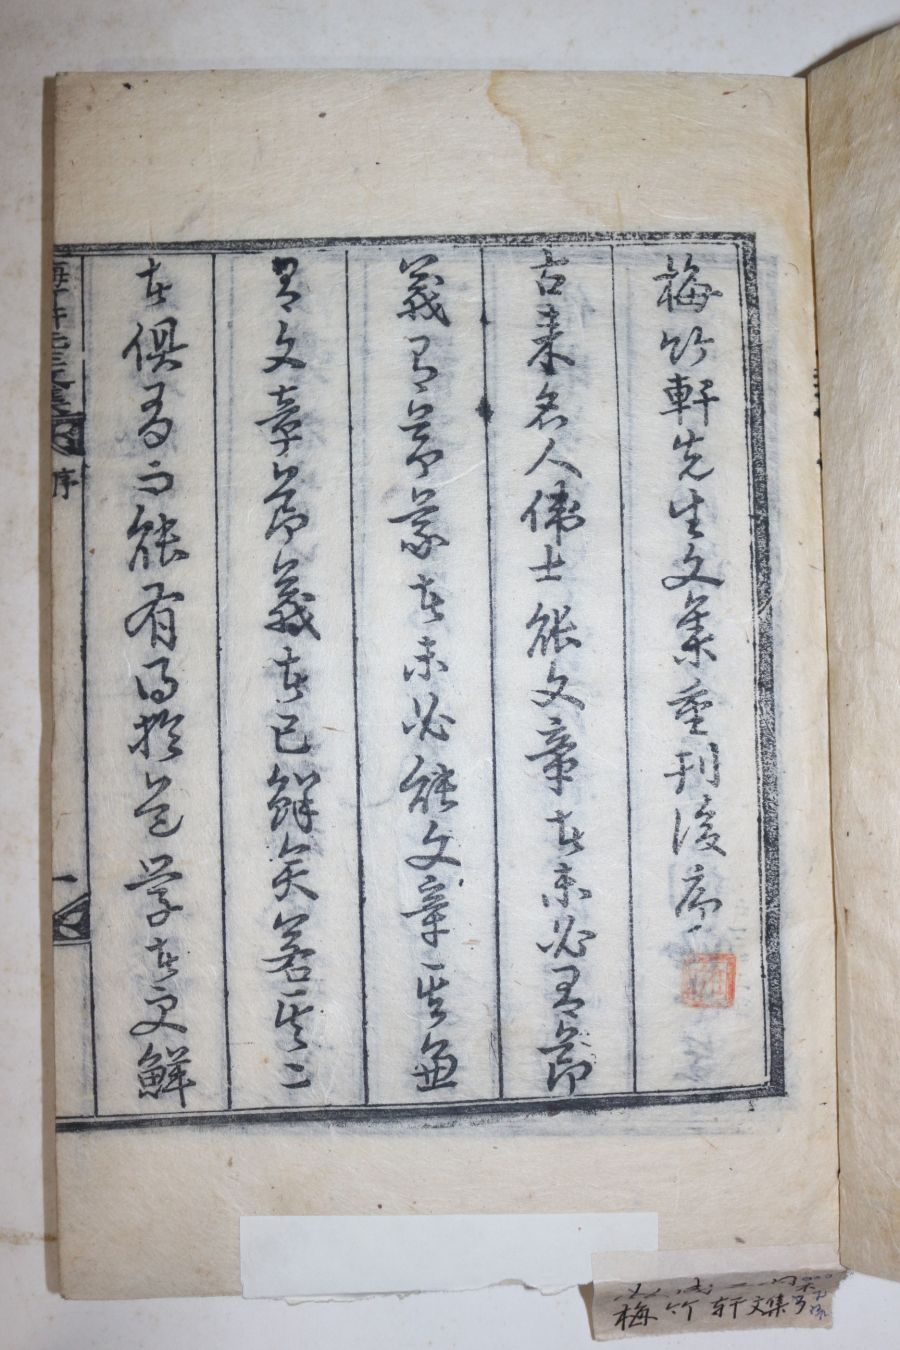 梅竹軒先生文集重刊後序
古来名人偉士能文章者未必有節
義有節義者未必能文章其兼
有文章節義者已鮮矣若其二
者俱有而能有得於道學者更鮮
梅竹軒先生文集 序 一
梅竹軒文集